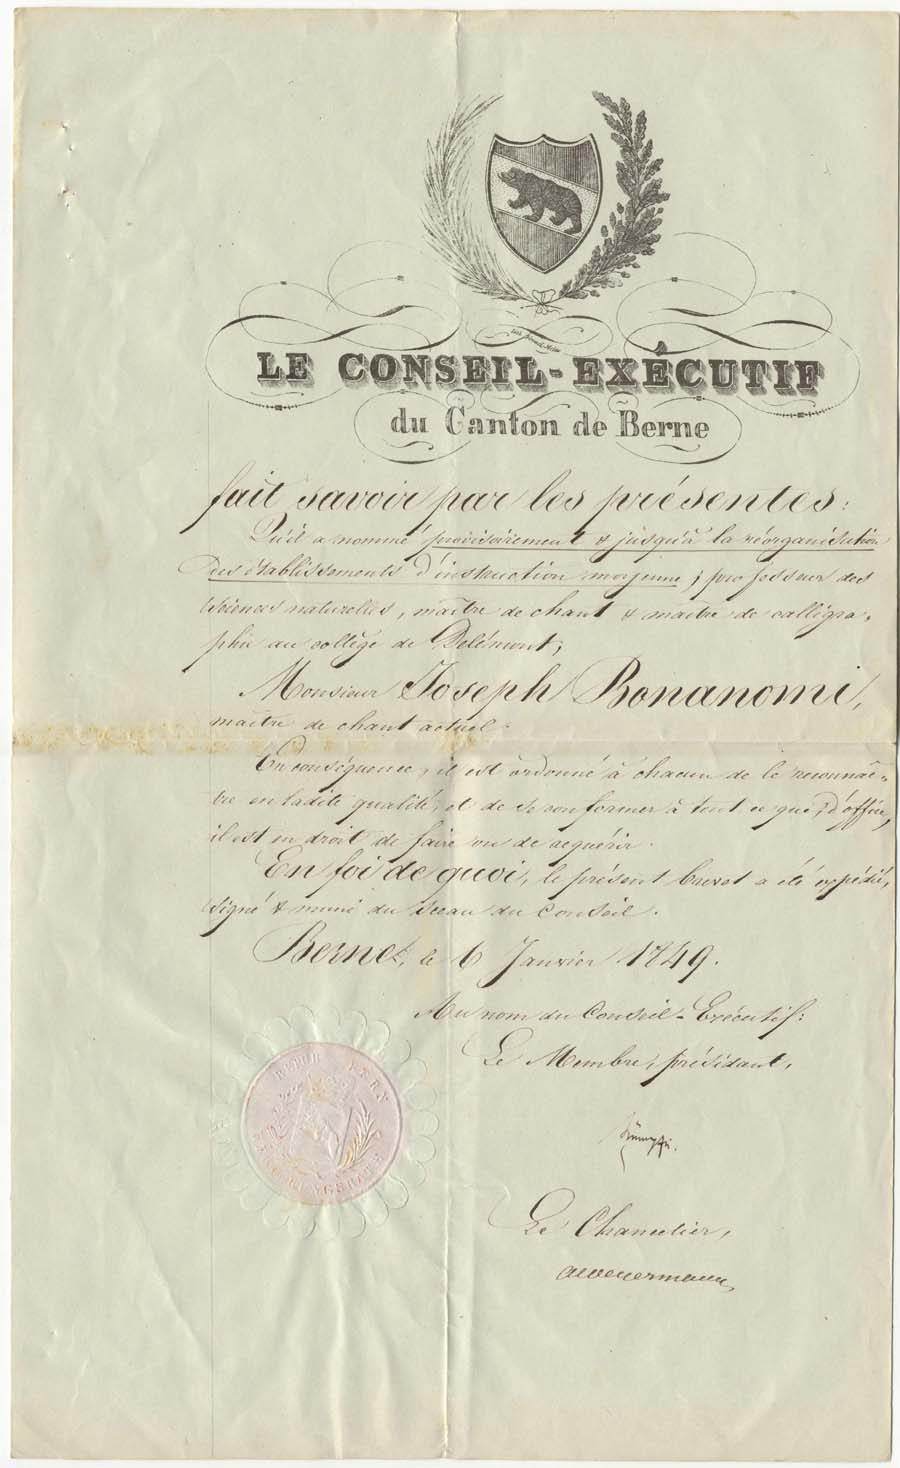 LE CONSEIL-EXÉCUTIF
du Canton de Berne
fait savoir par les présentes:
Qu'il a nommé provisoirement & jusqu'à la réorganisation
des établissements d'instruction moyenne, professeur des
sciences naturelles, maître de chant & maître de calligra-
phie au collège de Delémont,
Monsieur Joseph Bonanomi,
maître de chant actuel.
En conséquence, il est ordonné à chacun de le reconnaî-
tre en ladite qualité, et de se conformer à tout ce que, d'office,
il est en droit de faire ou de requérir.
En foi de quoi, le présent brevet a été expédié,
signé & muni du sceau du Conseil.
Berne, le 6 Janvier 1849.
Au nom du Conseil-Exécutif:
Le Membre, présidant,
Le Chancelier,
REPUB BERN
REGIERUNGSRATH